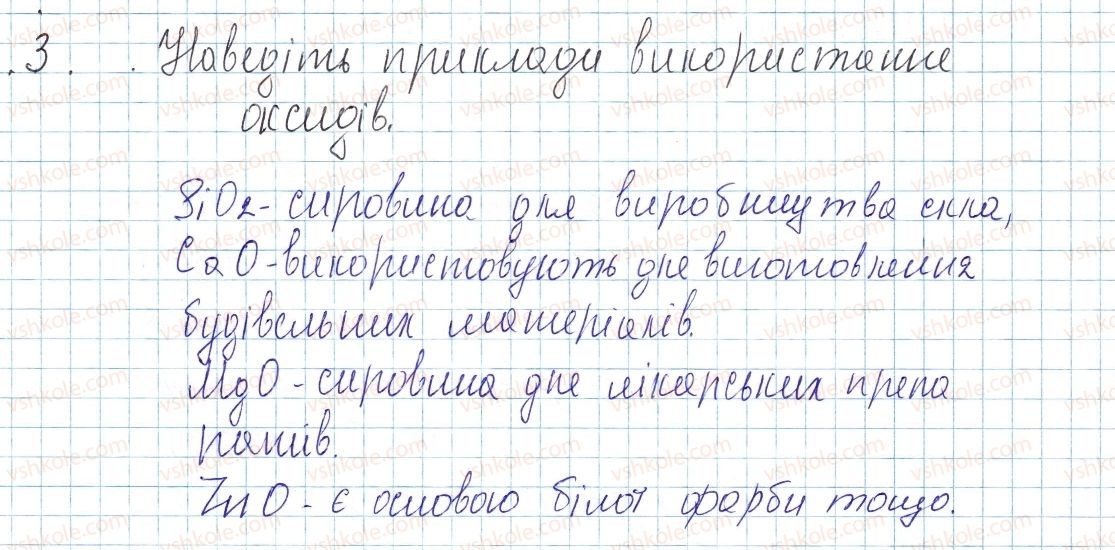 3. Наведіть приклади використання
оксидів.
SiO2 - сировина для виробництва скла,
CaO - використовують для виготовлення
будівельних матеріалів.
MgO - сировина для лікарських препа
ратів.
ZnO - є основою білої фарби тощо.